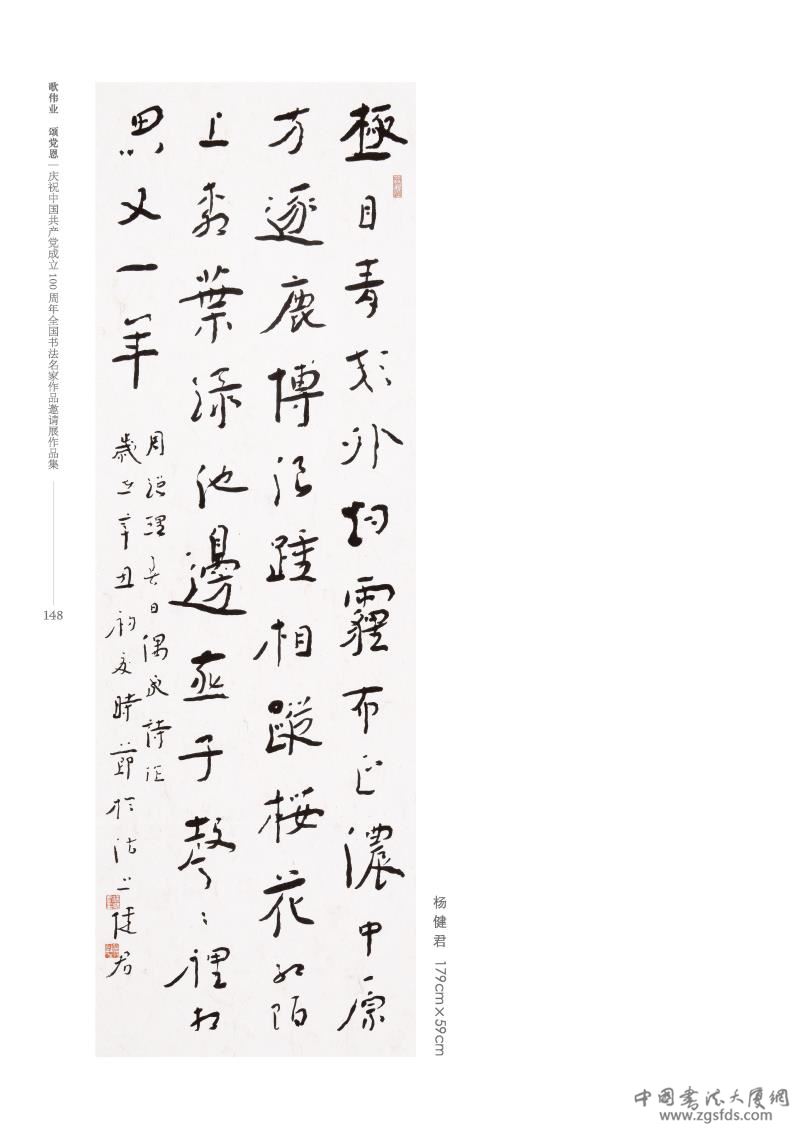 歌伟业 颂党恩 | 庆祝中国共产党成立100周年全国书法名家作品邀请展作品集
148
極目青郊外烟霾布正濃中原
方逐鹿博浪踵相蹤桜花红陌
上柳葉渌池邊燕子聲〻裡相
思又一年
周總理春日偶成詩作
歲在辛丑初夏時節於沽上健君
杨健君 179cm×59cm
中国书法大厦網
www.zgsfds.com